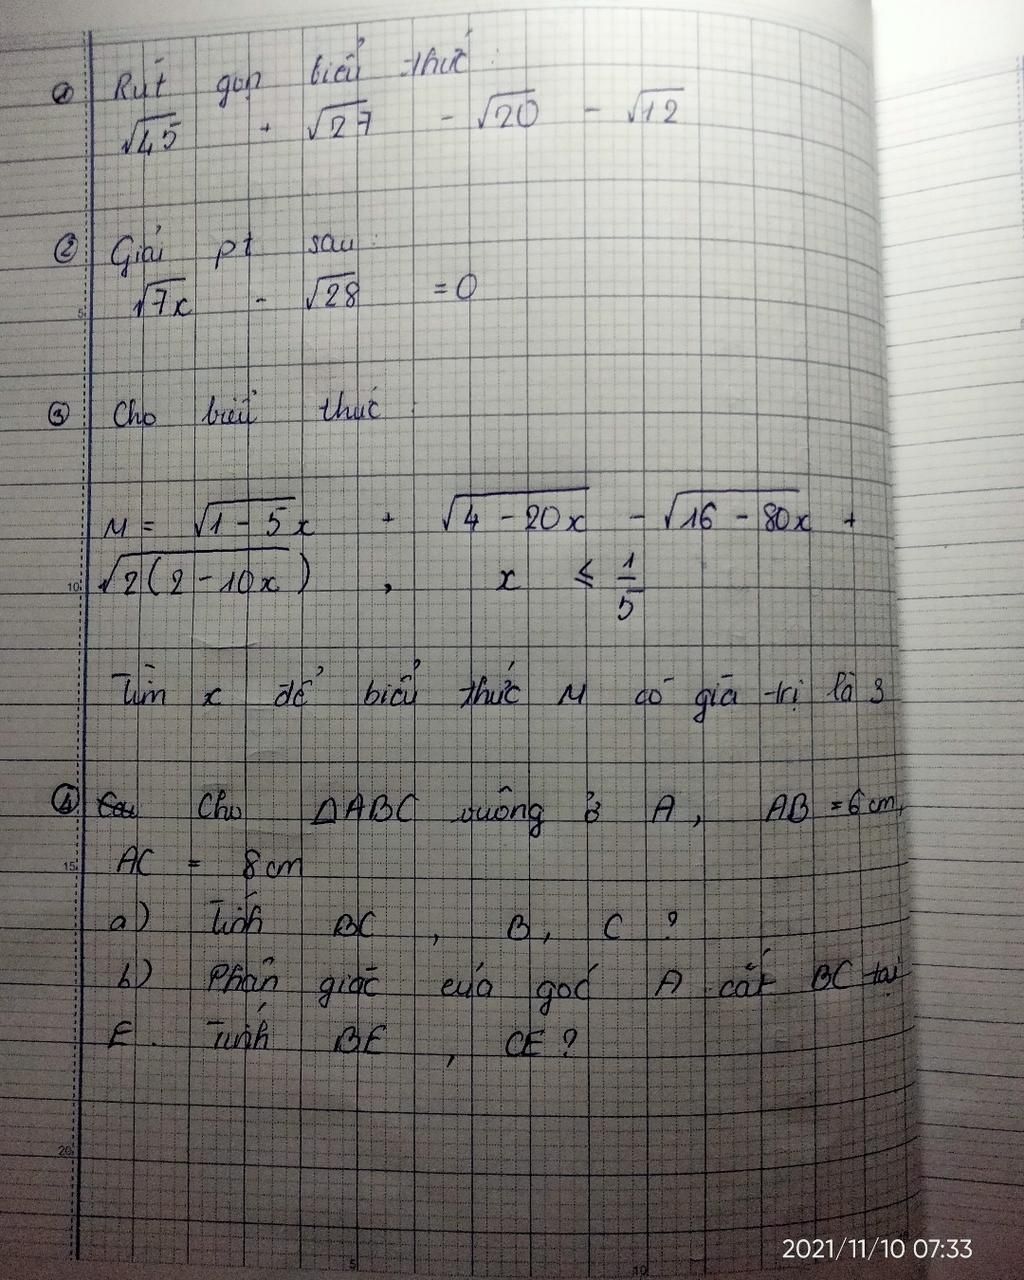 ① Rút gọn biểu thức :
√45 + √27 - √20 - √12
② Giải pt sau :
√7x - √28 = 0
5
③ Cho biểu thức :
M = √1 - 5x + √4 - 20x - √16 - 80x +
10 √2(2 - 10x) , x ≤ 1/5
Tìm x để biểu thức M có giá trị là 3
④ Cho ΔABC vuông ở A, AB = 6 cm,
15 AC = 8 cm
a) Tính BC , B, C ?
b) Phân giác của góc A cắt BC tại
E. Tính BE , CE ?
20
5 10
2021/11/10 07:33